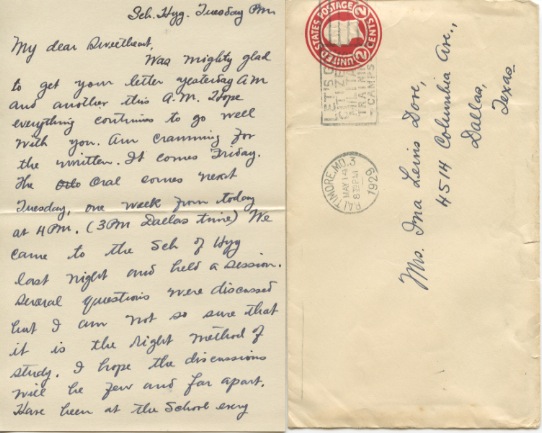 Sch. Hyg. Tuesday P.M.
My dear Sweetheart,
Was mighty glad
to get your letter yesterday A.M
and another this A.M. Hope
everything continues to go well
with you. Am cramming for
the written. It comes Friday.
The Oral comes next
Tuesday, one week from today
at 4 P.M. (3 P.M Dallas time) We
came to the Sch of Hyg
last night and held a session.
Several questions were discussed
but I am not so sure that
it is the right method of
study. I hope the discussions
will be few and far apart.
Have been at the School every
UNITED STATES POSTAGE
2 CENTS 2
LET'S
CITIZE
MILITA
TRAINI
CAMPS
BALTIMORE, MD. 3
MAY 14
8 PM
1929
Mrs. Ina Leivis Dore,
4514 Columbia Ave.,
Dallas,
Texas